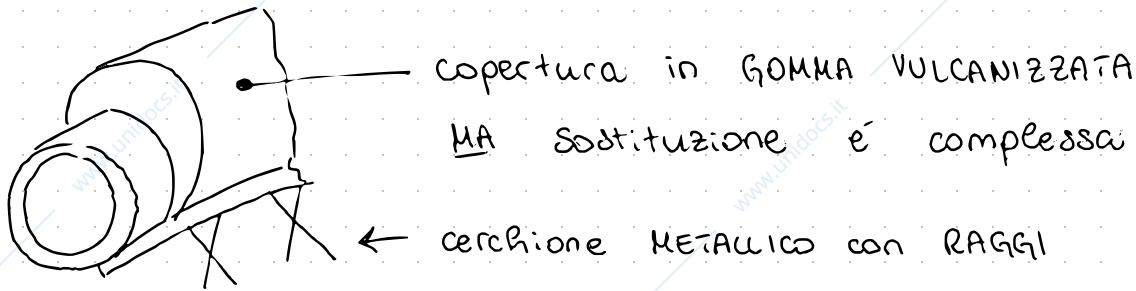 copertura in GOMMA VULCANIZZATA
MA sostituzione é complessa
← cerchione METALLICO con RAGGI
www.unidocs.it
www.unidocs.it